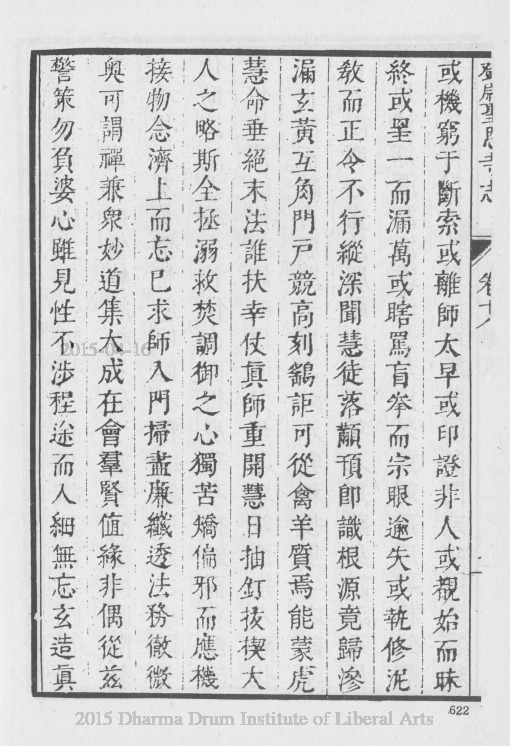 鄧尉聖恩寺志
卷十八
或機窮于斷索或離師太早或印證非人或覩始而昧
終或呈一而漏萬或瞎罵盲拳而宗眼逾失或執修泥
敎而正令不行縱深聞慧徒落顢預卽識根源竟歸滲
漏玄黃互角門戶競高刻鷂詎可從禽羊質焉能蒙虎
慧命垂絕末法誰扶幸仗眞師重開慧日抽釘拔楔大
人之略斯全拯溺救焚調御之心獨苦矯偏邪而應機
接物念濟上而忘已求師入門掃盡廉纖透法務徹微
奧可謂禪兼衆妙道集大成在會羣賢值緣非偶從茲
警策勿負婆心雖見性不涉程途而人細無忘玄造眞
622
2015-04-16
2015 Dharma Drum Institute of Liberal Arts